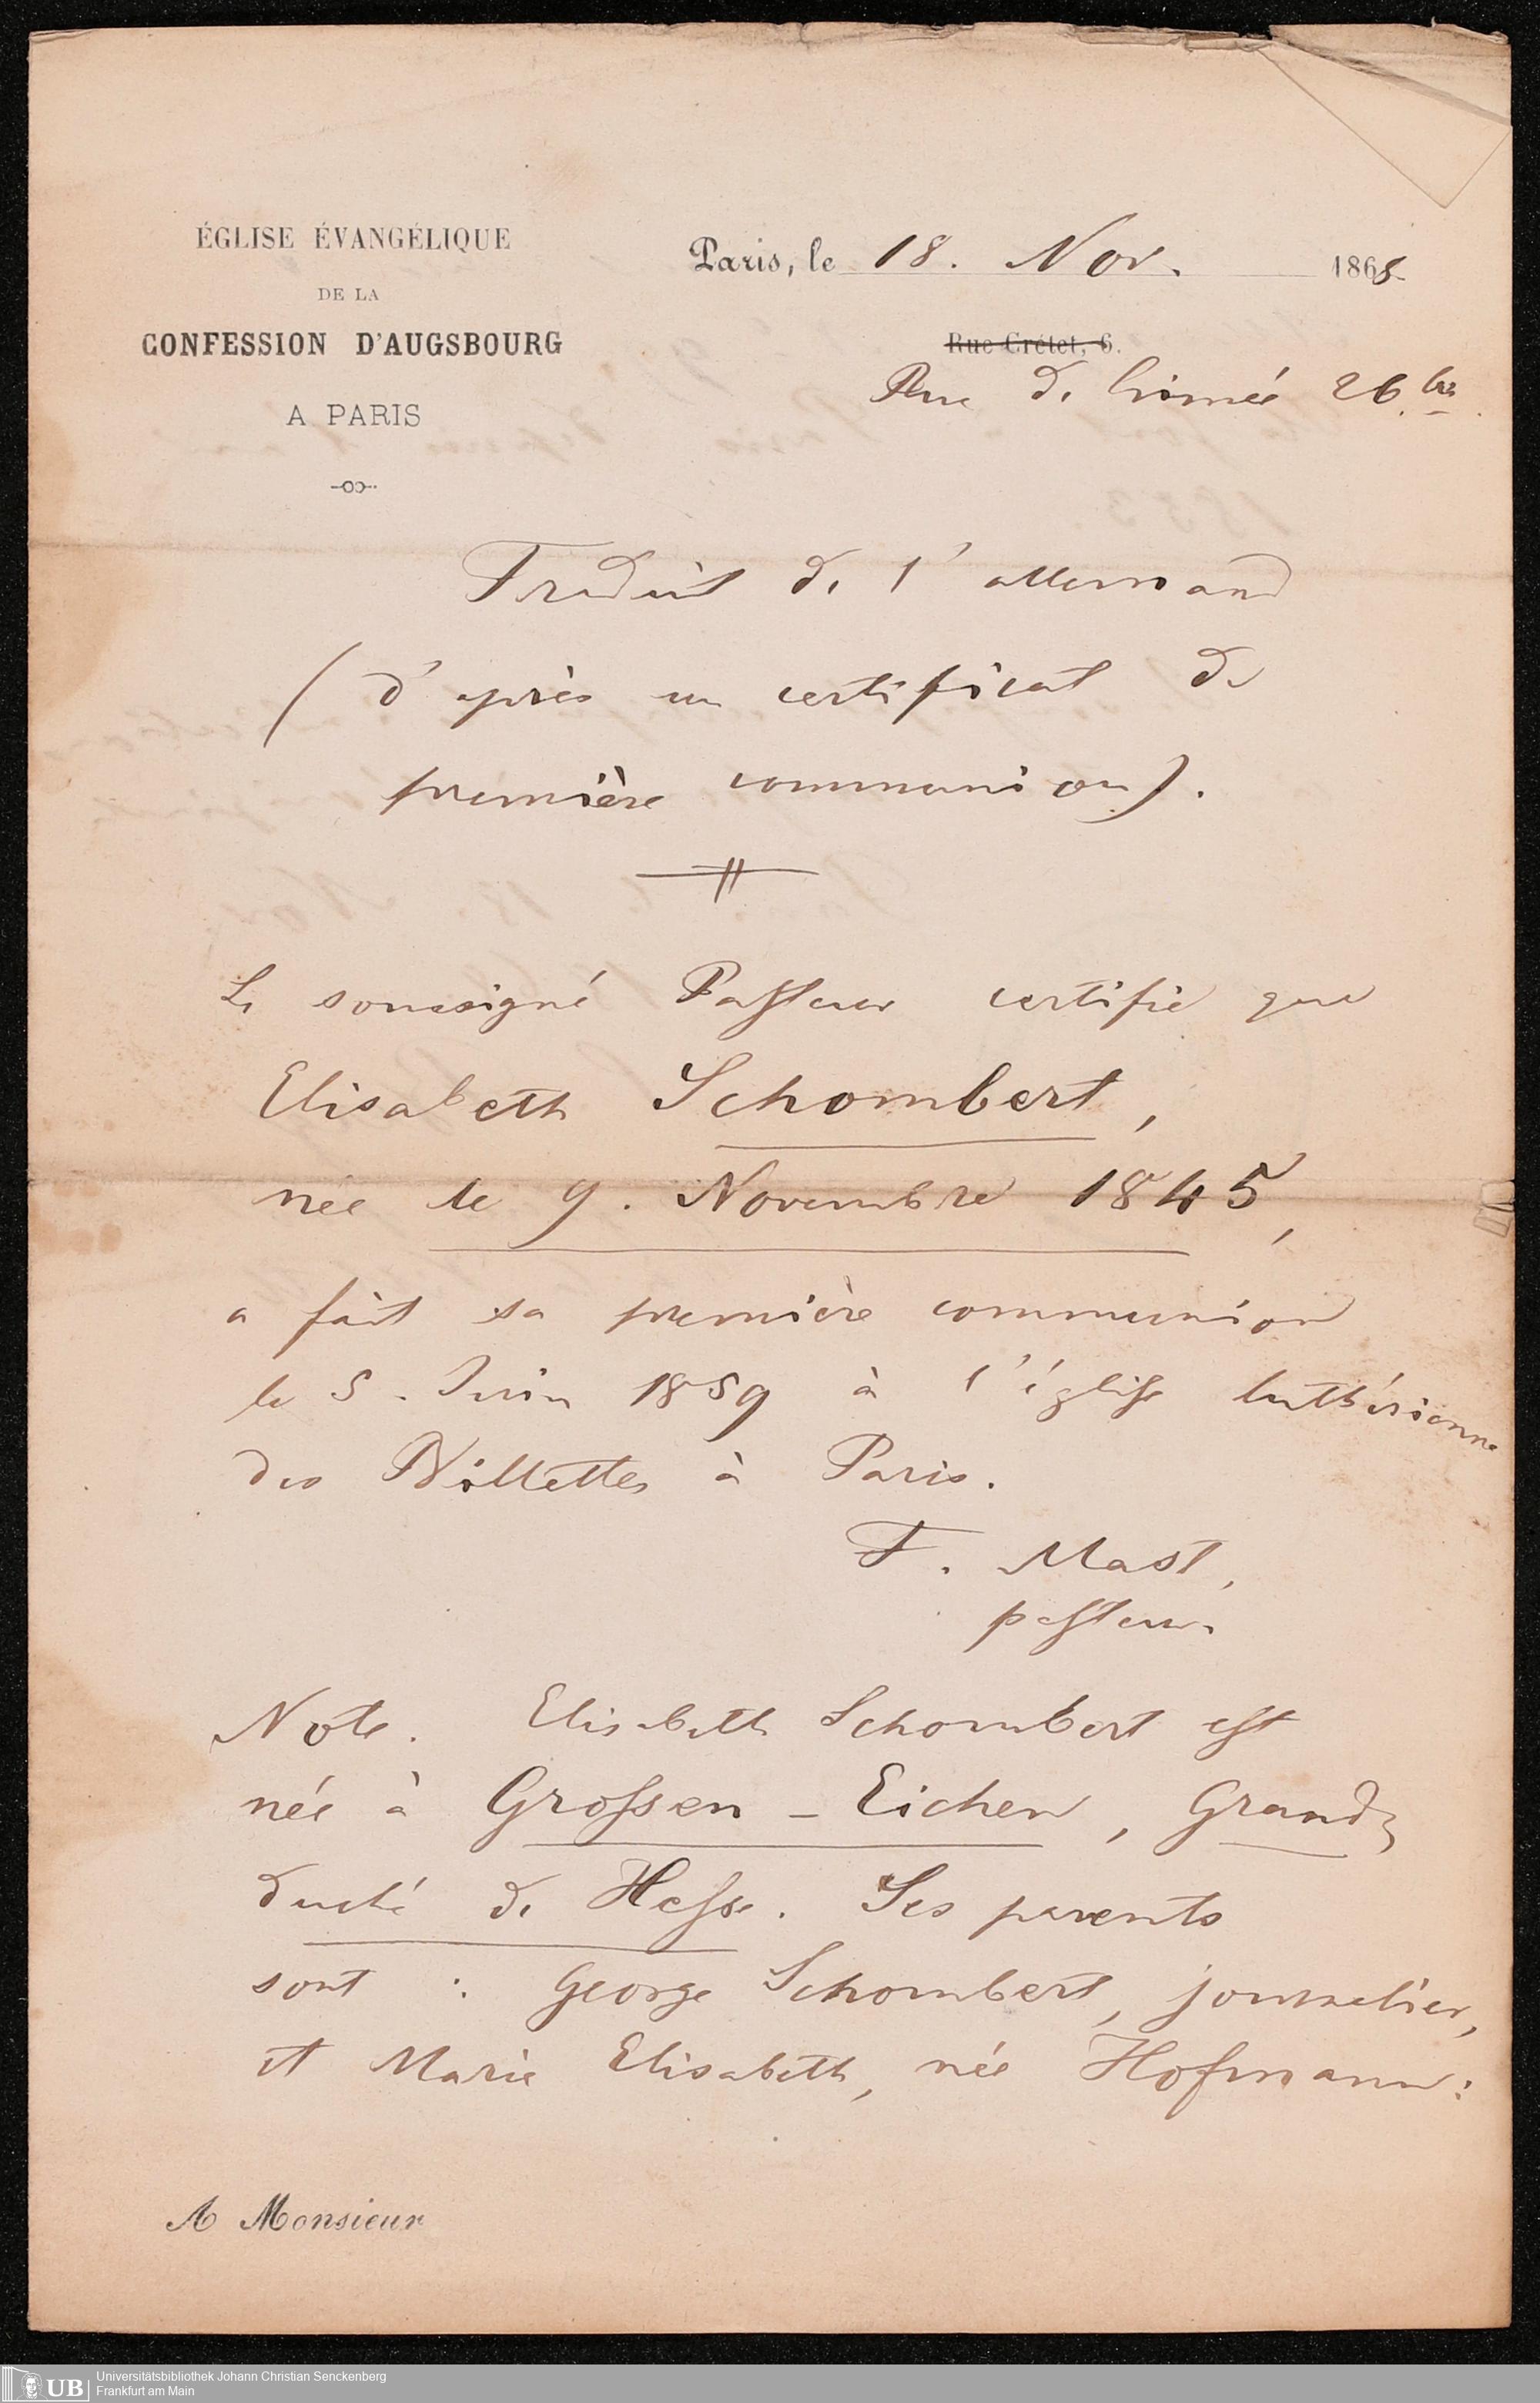 ÉGLISE ÉVANGÉLIQUE
DE LA
CONFESSION D'AUGSBOURG
A PARIS
Paris, le 18. Nov. 1868
Rue Crétet, 6.
Rue de 26 bis
Traduit de l'allemand
(d'après un certificat de
première communion).
Le soussigné Pasteur certifie que
Elisabeth Schombert,
née le 9. Novembre 1845,
a fait sa première communion
le 5. Juin 1859 à l'église luthérienne
des Billettes à Paris.
F. Mast,
pasteur.
Note. Elisabeth Schombert est
née à Grossen-Eichen, Grand-
duché de Hesse. Ses parents
sont : George Schombert, journalier,
et Marie Elisabeth, née Hofmann:
A Monsieur
UB
Universitätsbibliothek Johann Christian Senckenberg
Frankfurt am Main